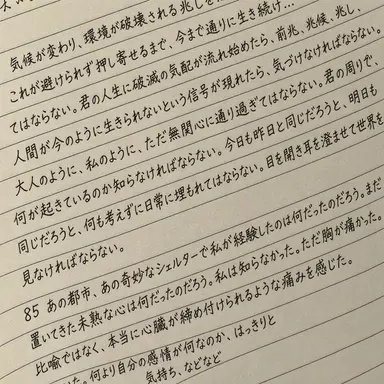 気候が変わり、環境が破壊される兆しを
これが避けられず押し寄せるまで、今まで通りに生き続け…
てはならない。君の人生に破滅の気配が流れ始めたら、前兆、兆候、兆し、
人間が今のように生きられないという信号が現れたら、気づけなければならない。
大人のように、私のように、ただ無関心に通り過ぎてはならない。君の周りで、
何が起きているのか知らなければならない。今日も昨日と同じだろうと、明日も
同じだろうと、何も考えずに日常に埋もれてはならない。目を開き耳を澄ませて世界を
見なければならない。
85 あの都市、あの奇妙なシェルターで私が経験したのは何だったのだろう。まだ
置いてきた未熟な心は何だったのだろう。私は知らなかった。ただ胸が痛かった。
比喩ではなく、本当に心臓が締め付けられるような痛みを感じた。
た。何より自分の感情が何なのか、はっきりと
気持ち、などなど